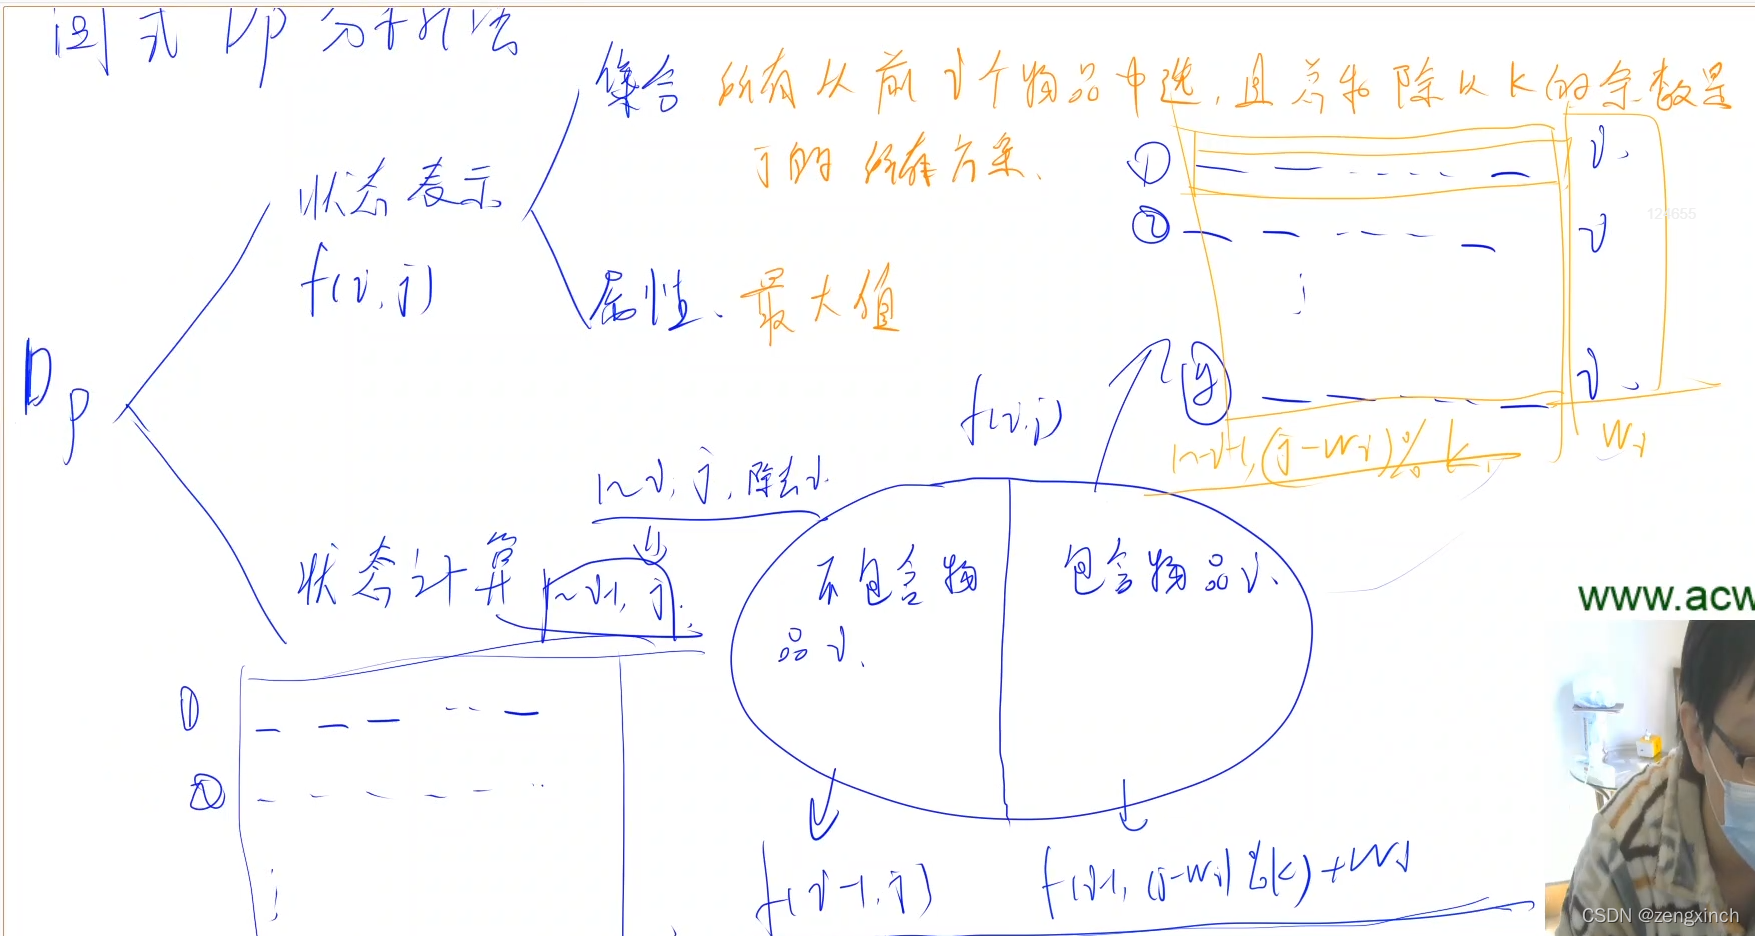 闫式DP分析法
集合 所有从前i个物品中选,且总和除以K的余数是
j的所有方案.
状态表示
f(i,j)
属性. 最大值
① i.
② i
i.
Wi
1~i-1,(j-Wi)%k,
DP
f(i,j)
1~i, j, 除去i.
状态计算
1~i-1, j.
不包含物
品i.
包含物品i.
①
②
f(i-1,j)
f(i-1,(j-Wi)%k)+Wi
124655
www.acw
CSDN @zengxinch